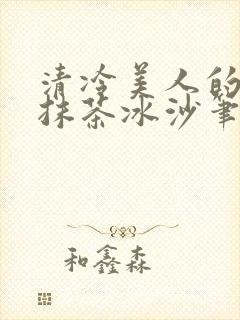 清冷美人的
抹茶冰沙笔
和鑫森